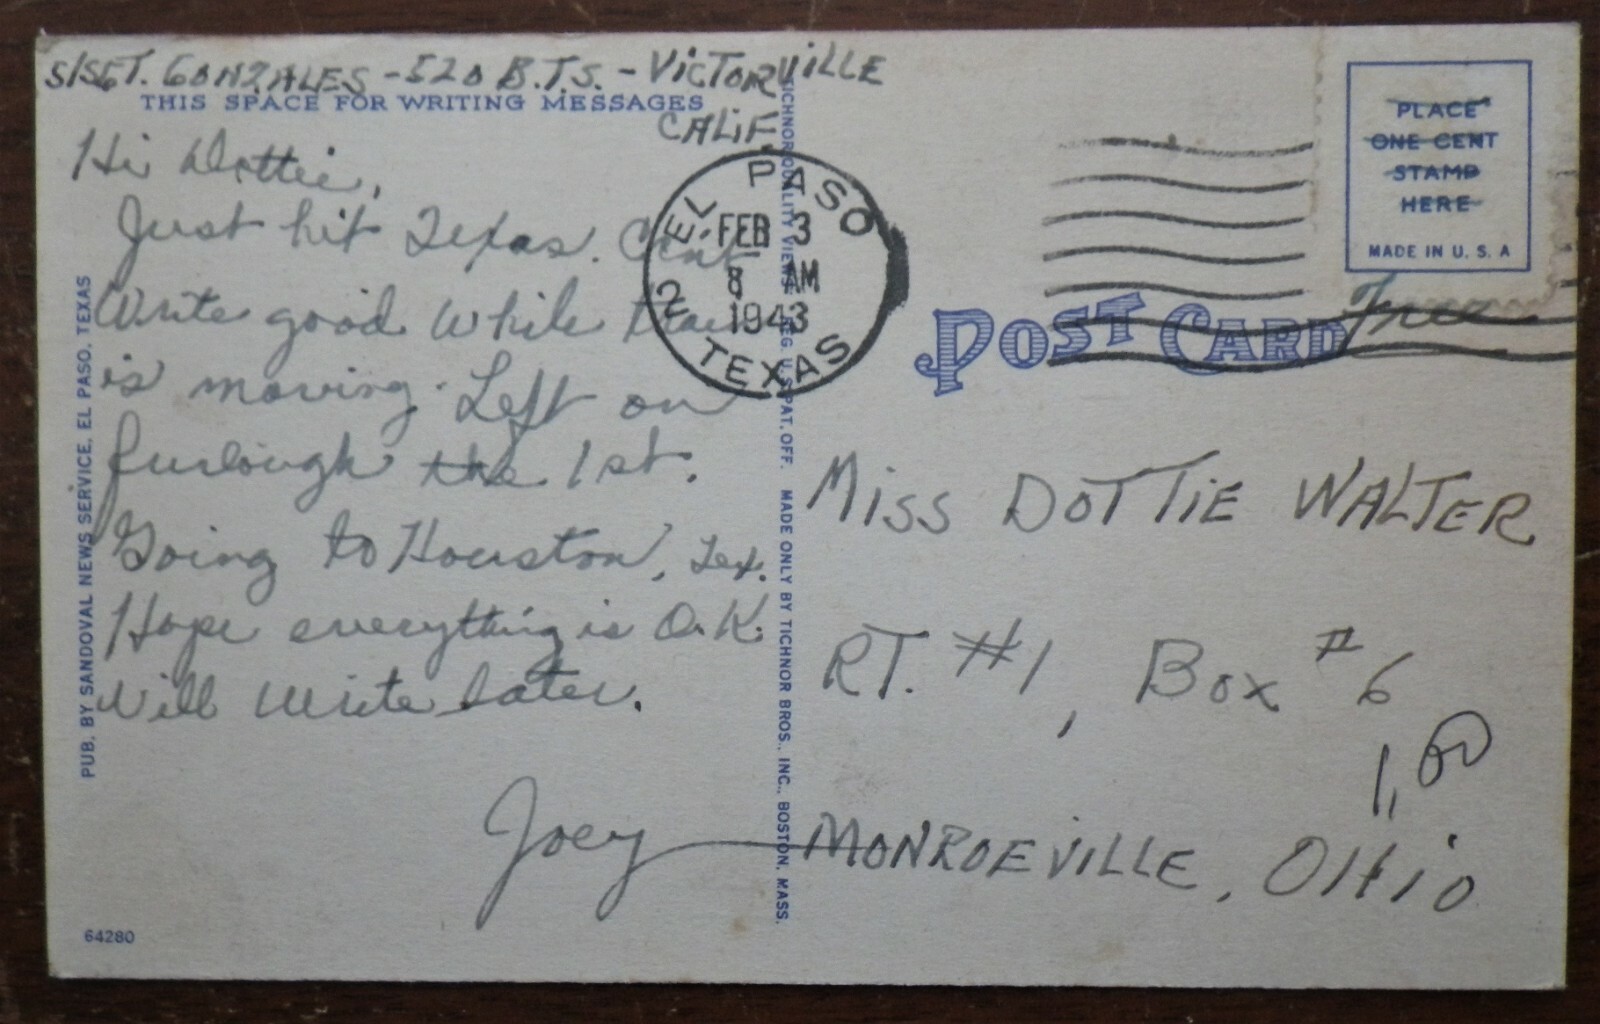 S/SGT. GONZALES - 520 B.T.S. - VICTORVILLE
CALIF.
THIS SPACE FOR WRITING MESSAGES
Hi Dottie,
Just hit Texas. Cant
write good while train
is moving. Left on
furlough the 1st.
Going to Houston, Tex.
Hope everything is O.K.
Will write later.
Joey
PUB. BY SANDOVAL NEWS SERVICE, EL PASO, TEXAS
64280
EL PASO 2 TEXAS
FEB 3
8 AM
1943
TICHNOR QUALITY VIEWS REG. U. S. PAT. OFF. MADE ONLY BY TICHNOR BROS., INC., BOSTON, MASS.
PLACE
ONE CENT
STAMP
HERE
MADE IN U. S. A
Free
POST CARD
MISS DOTTIE WALTER
RT. #1, BOX #6
1,00
MONROEVILLE, OHIO